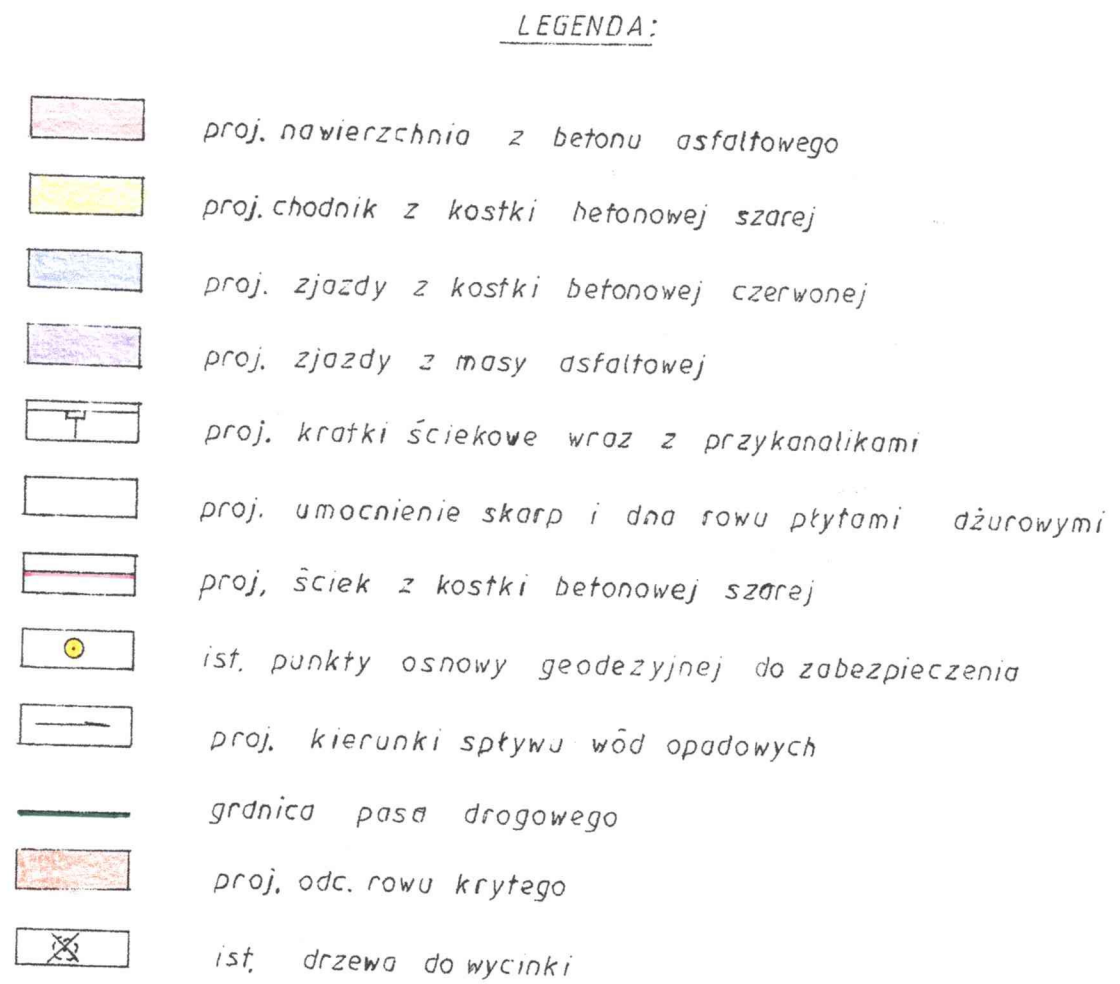 LEGENDA:
proj. nawierzchnia z betonu asfaltowego
proj. chodnik z kostki betonowej szarej
proj. zjazdy z kostki betonowej czerwonej
proj. zjazdy z masy asfaltowej
proj. kratki ściekowe wraz z przykanalikami
proj. umocnienie skarp i dna rowu płytami ażurowymi
proj. ściek z kostki betonowej szarej
ist. punkty osnowy geodezyjnej do zabezpieczenia
proj. kierunki spływu wód opadowych
granica pasa drogowego
proj. odc. rowu krytego
ist. drzewa do wycinki